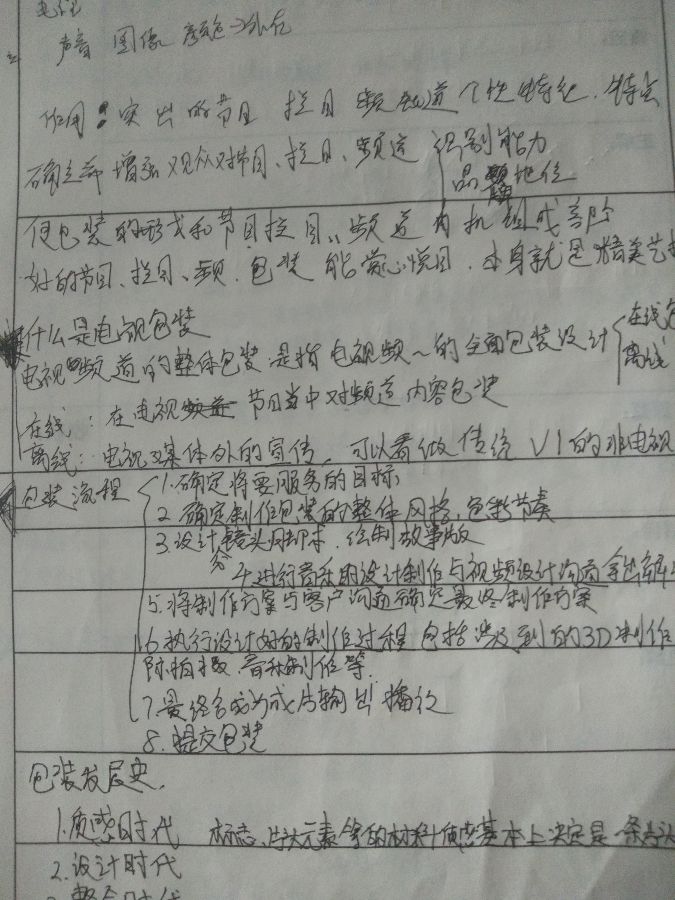 声音 图像 颜色
作用：突出的节目 栏目 频道个性特征、特点
确立并增强观众对节目、栏目、频道 识别能力
品牌地位
使包装的形式和节目栏目、频道有机组成部分
好的节目、栏目、频 包装 能赏心悦目，本身就是精美艺
什么是电视包装
电视频道的整体包装是指电视频~的全面包装设计 在线
离线
在线：在电视节目当中对频道内容包装
离线：电视媒体外的宣传，可以看做传统VI的非电视
包装流程
1.确定将要服务的目标
2.确定制作包装的整体风格，包括节奏
3.设计分镜头脚本，绘制故事版
4.进行音乐的设计制作与视频设计沟通 拿出解
5.将制作方案与客户沟通确定最终制作方案
6.执行设计好的制作过程 包括涉及到的3D制作
际拍摄、音乐制作等
7.最终合成为成片输出播放
8.提交包装
包装发展史
1.质感时代 标志、片头元素等的材料质感基本上决定是一条片头
2.设计时代